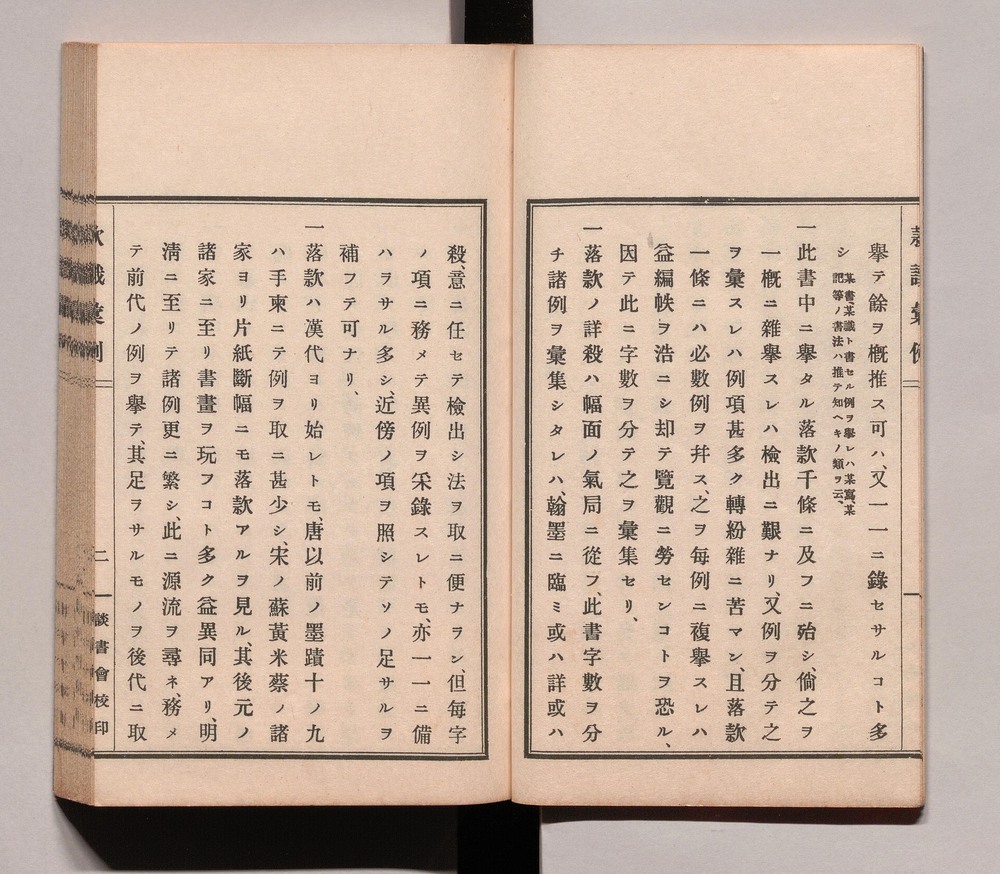 擧テ餘ヲ概推ス可ハ、又一一ニ錄セサルコト多
シ某書、某識ト書セル例ヲ擧レハ某寫、某
記等ノ書法ハ推テ知ヘキノ類ヲ云、
一此書中ニ擧タル落款千條ニ及フニ殆シ、倘之ヲ
一概ニ雜擧スレハ檢出ニ艱ナリ、又例ヲ分テ之
ヲ彙スレハ例項甚多ク轉紛雜ニ苦マン、且落款
一條ニハ必數例ヲ幷ス、之ヲ每例ニ複擧スレハ
益編帙ヲ浩ニシ却テ覽觀ニ勞センコトヲ恐ル、
因テ此ニ字數ヲ分テ之ヲ彙集セリ、
一落款ノ詳殺ハ幅面ノ氣局ニ從フ、此書字數ヲ分
チ諸例ヲ彙集シタレハ、翰墨ニ臨ミ或ハ詳或ハ
殺、意ニ任セテ檢出シ法ヲ取ニ便ナラン、但每字
ノ項ニ務メテ異例ヲ采錄スレトモ、亦一一ニ備
ハラサル多シ、近傍ノ項ヲ照シテソノ足サルヲ
補フテ可ナリ、
一落款ハ漢代ヨリ始レトモ、唐以前ノ墨蹟十ノ九
ハ手柬ニテ例ヲ取ニ甚少シ、宋ノ蘇黃米蔡ノ諸
家ヨリ片紙斷幅ニモ落款アルヲ見ル、其後元ノ
諸家ニ至リ書畫ヲ玩フコト多ク益異同アリ、明
淸ニ至リテ諸例更ニ繁シ、此ニ源流ヲ尋ネ、務メ
テ前代ノ例ヲ擧テ、其足ヲサルモノヲ後代ニ取
二
談書會校印